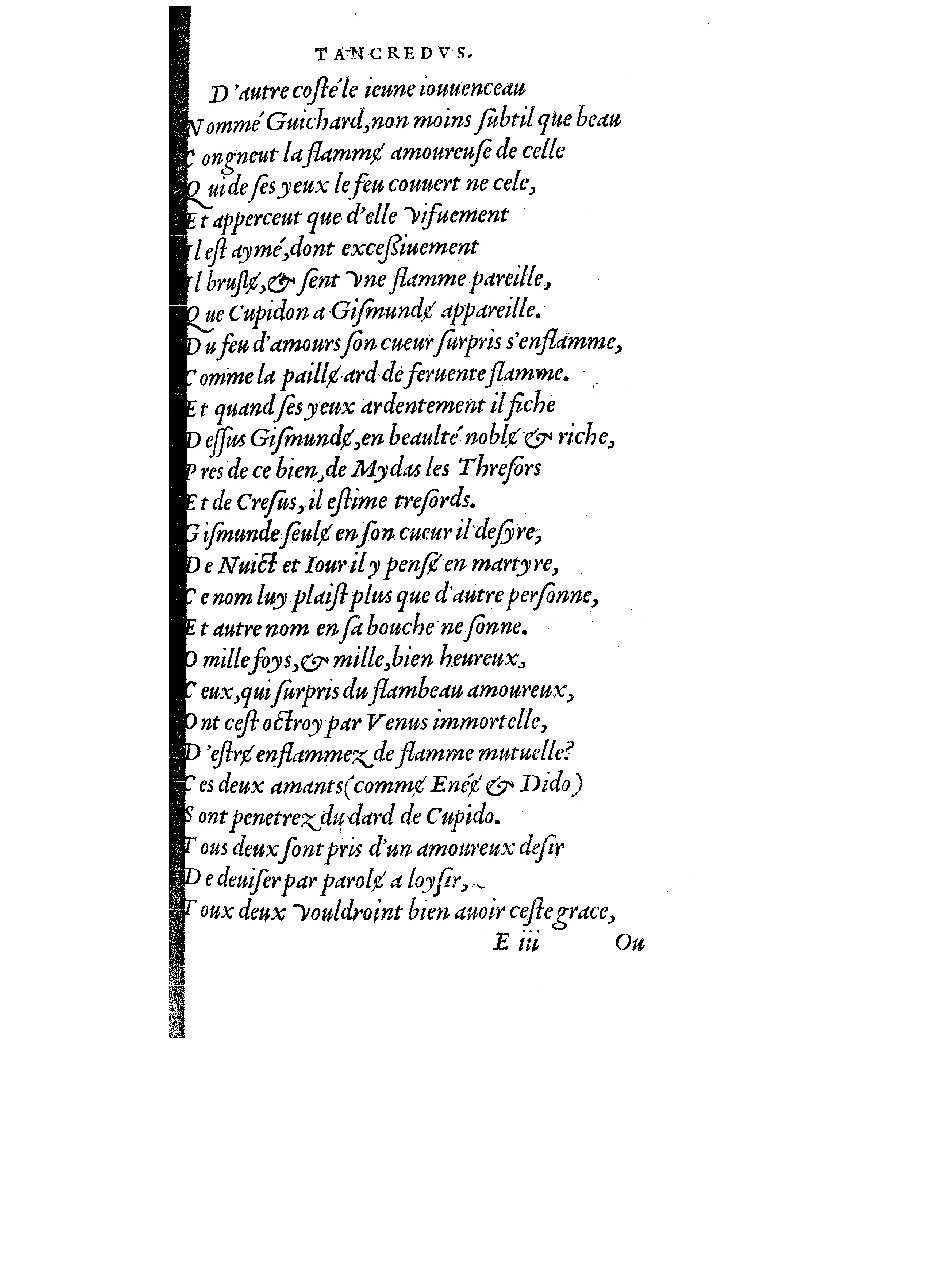 TANCREDVS.
D'autre costé le ieune iouuenceau
Nommé Guichard, non moins ſubtil que beau
Congneut la flammɇ amoureuſe de celle
Qui de ſes yeux le feu couuert ne cele,
Et apperceut que d'elle viſuement
Il eſt aymé, dont exceßiuement
Il bruſlɇ, & ſent vne flamme pareille,
Que Cupidon a Giſmundɇ appareille.
Du feu d'amours ſon cueur ſurpris s'enflamme,
Comme la paillɇ ard de feruente flamme.
Et quand ſes yeux ardentement il fiche
Deſſus Giſmundɇ, en beaulté noblɇ & riche,
Pres de ce bien, de Mydas les Threſors
Et de Creſus, il eſtime treſords.
Giſmunde ſeulɇ en ſon cueur il deſyre,
De Nuict et Iour il y penſɇ en martyre,
Ce nom luy plaiſt plus que d'autre perſonne,
Et autre nom en ſa bouche ne ſonne.
O mille foys, & mille, bien heureux,
Ceux, qui ſurpris du flambeau amoureux,
Ont ceſt octroy par Venus immortelle,
D'eſtrɇ enflammez de flamme mutuelle?
Ces deux amants (commɇ Enéɇ & Dido)
Sont penetrez du dard de Cupido.
Tous deux ſont pris d'un amoureux deſir
De deuiſer par parolɇ a loyſir,
Toux deux vouldroint bien auoir ceſte grace,
E iii Ou